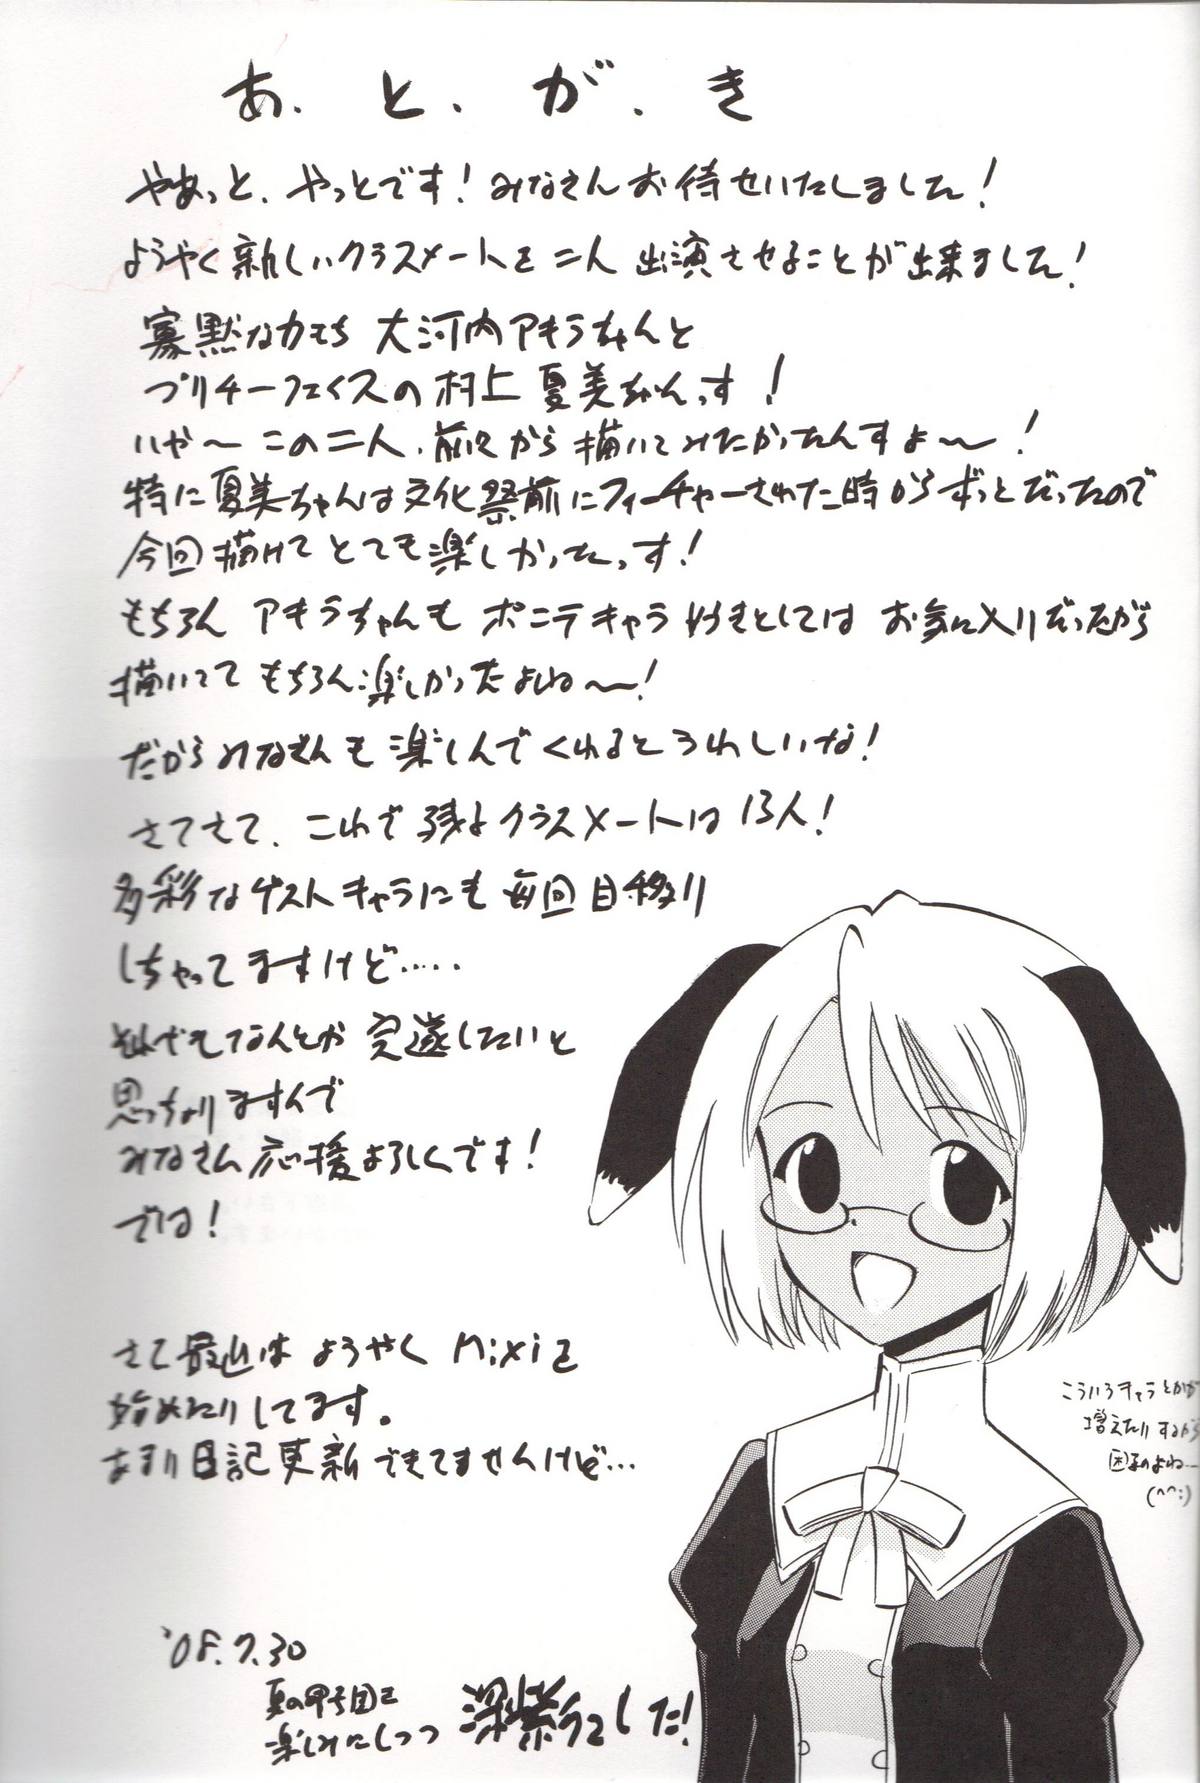 あ.と.が.き
やあっと、やっとです！みなさんお待せいたしました！
ようやく新しいクラスメートを二人出演させることが出来ました！
寡黙な力もち 大河内アキラちゃんと
プリチーフェイスの村上夏美ちゃんっす！
いや〜この二人、前々から描いてみたかったんすよ〜！
特に夏美ちゃんは文化祭前にフィーチャーされた時からずっとだったので
今回描けてとても楽しかったっす！
もちろん アキラちゃんも ポニテキャラ好きとしては お気に入りだったから
描いてて もちろん楽しかったよね〜！
だからみなさんも楽しんでくれるとうれしいな！
さてさて、これで残るクラスメートは13人！
多彩なゲストキャラにも毎回目移り
しちゃってますけど‥‥‥
それでもなんとか完遂したいと
思っちょりますんで
みなさん応援よろしくです！
では！
さて最近は ようやく mixiを
始めたりしてます。
あまり日記更新できてませんけど…
こういうキャラとかが
増えたりするから
困るのよね…
(^^;)
'08.7.30
夏の甲子園を
楽しみにしつつ 深紫でした！